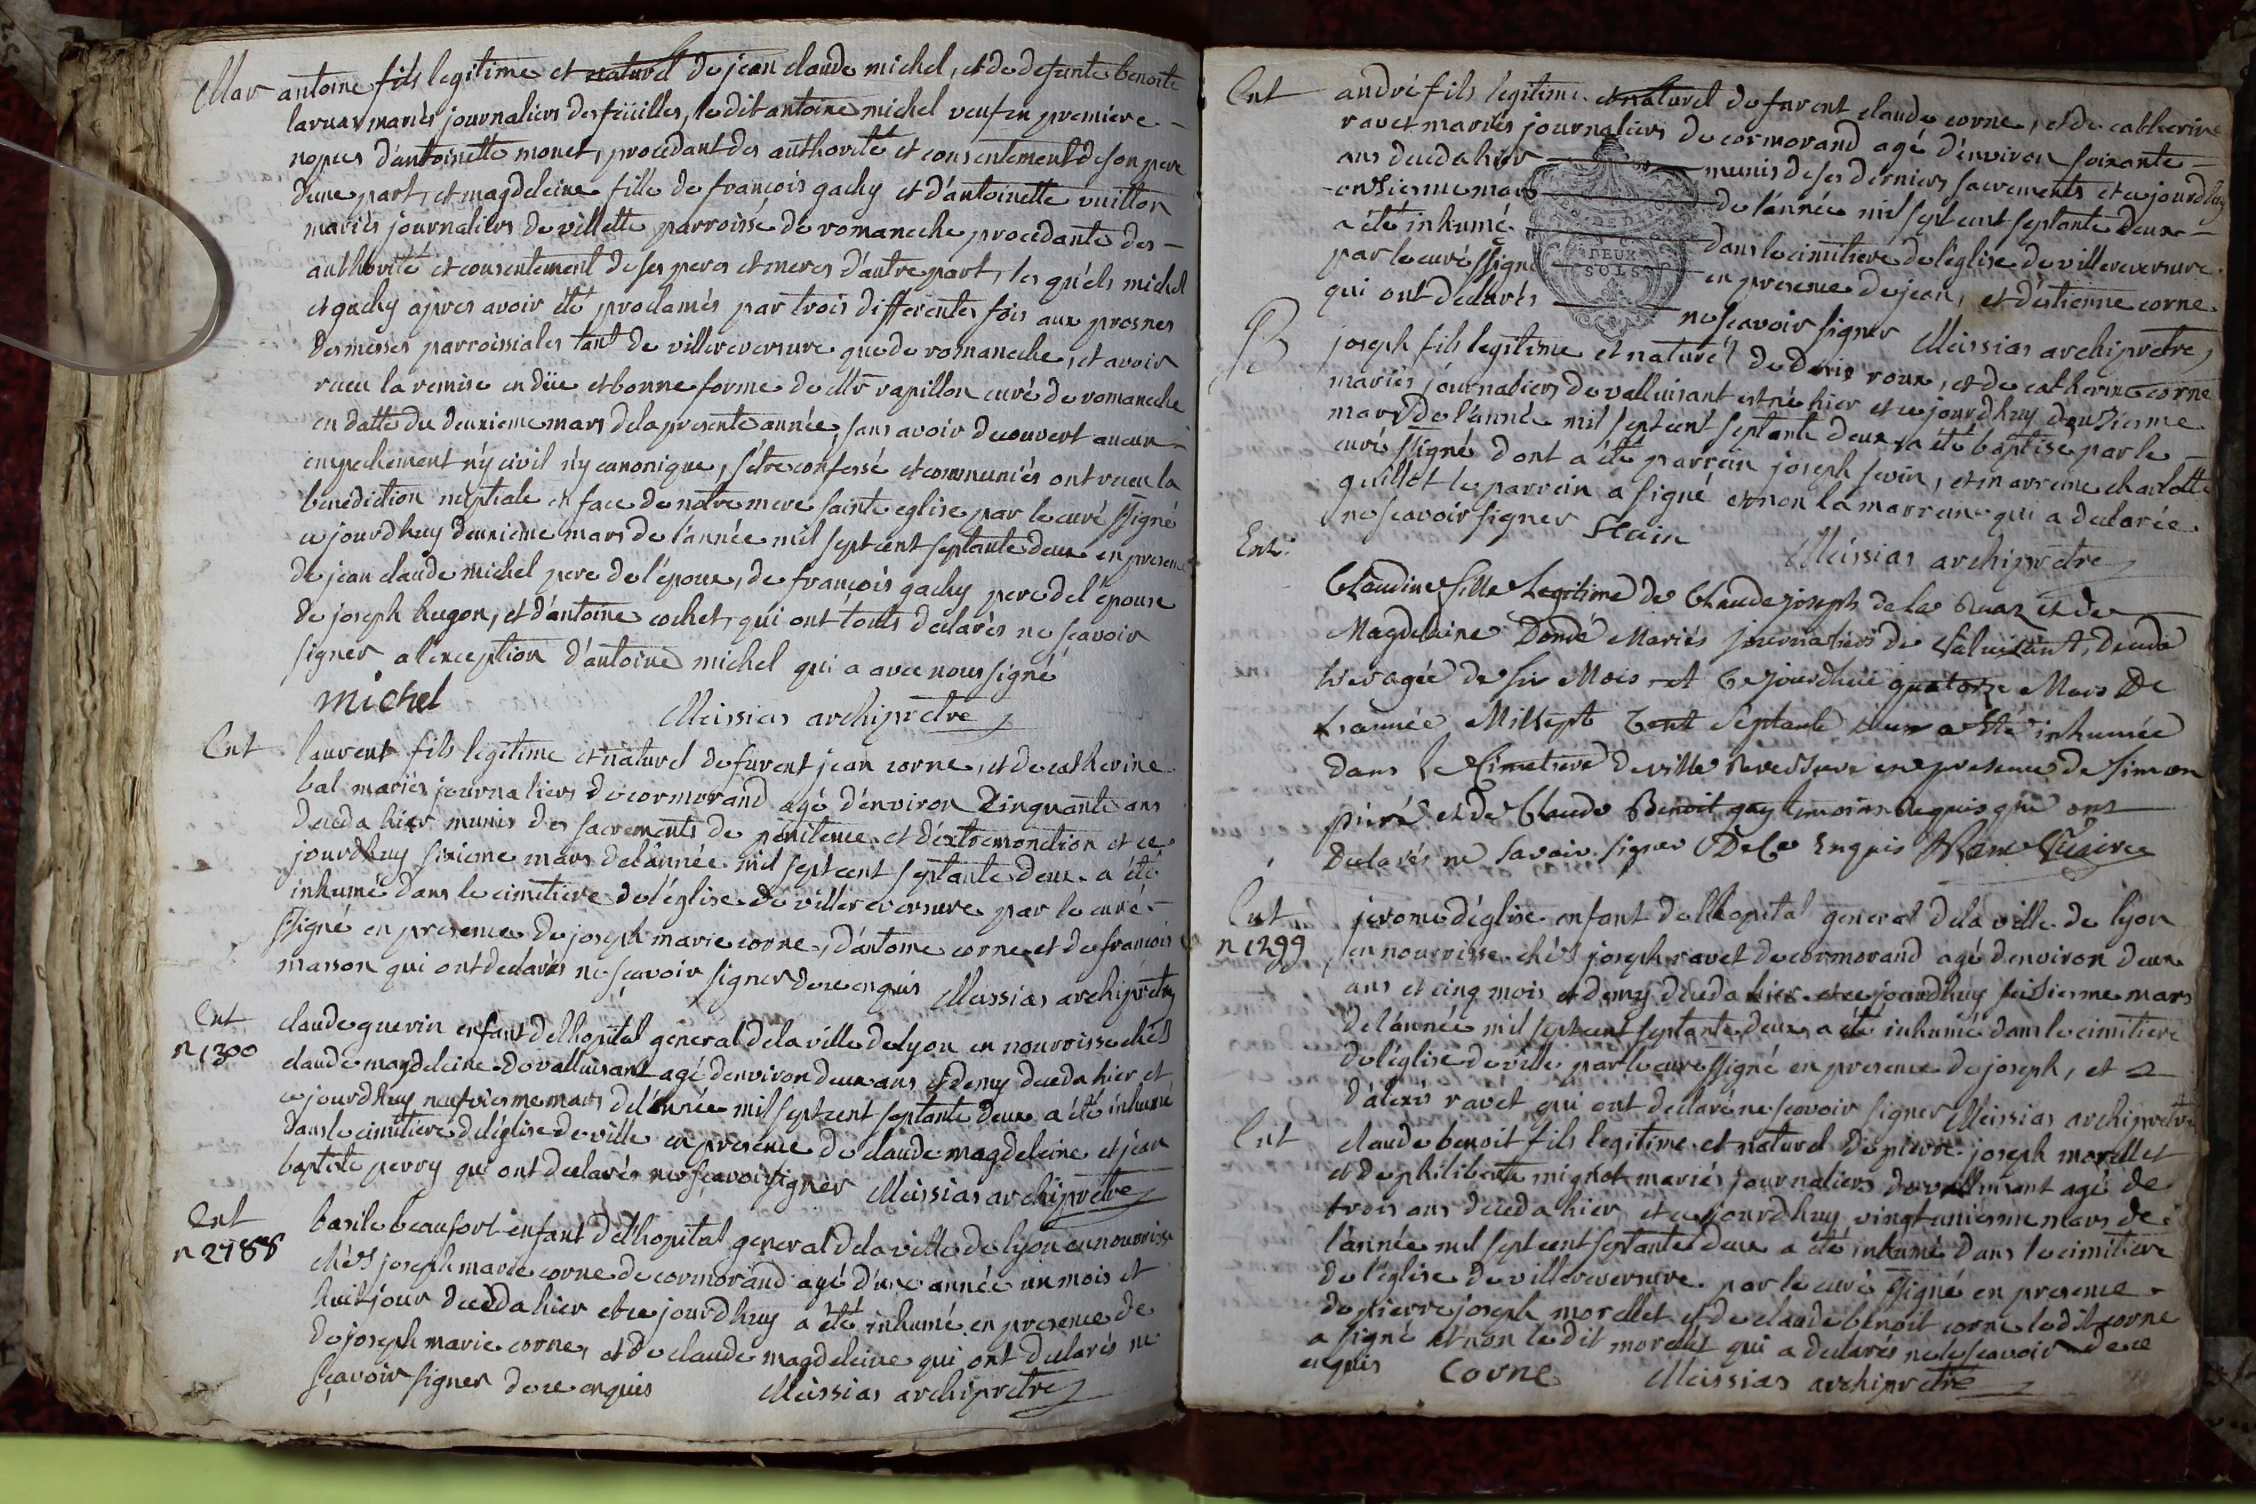 Mar antoine fils legitime et naturel de jean claude michel, et de defunte benoite
laruaz mariés journaliers des feüilles, le dit antoine michel veuf en premiere
nopces d'antoinette monet, procedant des authorité et consentement de son pere
d'une part, et magdeleine fille de françois gachy et d'antoinette vuitton
mariés journaliers de villette parroisse de romaneche procedante des
authorité et consentement de ses peres et meres d'autre part, les quéls michel
et gachy apres avoir été proclamés par trois differentes fois aux prosnes
des messes parroissiales tant de villereversure que de romaneche, et avoir
receu la remise en düe et bonne forme de Mr rapillon curé de romaneche
en datte du deuxieme mars de la presente année, sans avoir decouvert aucun
empechement n'y civil n'y canonique, s'étre confessé et communiés ont receu la
benediction nuptiale en face de notre mere sainte eglise par le curé ssigné
ce jourdhuy deuxieme mars de l'année mil sept cent septante deux en presence
de jean claude michel pere de l'epoux, de françois gachy pere de l'epouse
de joseph hugon, et d'antoine cochet, qui ont touts declarés ne scavoir
signer a l'exception d'antoine michel qui a avec nous signé
michel
Meissias archiprétre
Ent laurent fils legitime et naturel de furent jean corne, et de catherine
bal mariés journaliers de cormorand agé d'énviron cinquante ans
deceda hier munis des sacrements de penitence et d'éxtremonction et ce
jourdhuy sixieme mars de l'année mil sept cent septante deux a été
inhumé dans le cimitiere de l'église de villereversure par le curé
ssigné en presence de joseph marie corne, d'antoine corne et de françois
masson qui ont declarés ne sçavoir signer de ce enquis Meissias archiprétre
Ent claude guerin enfant de l'hopital general de la ville de lyon en nourrisse chés
n 1300 claude magdeleine de valluisant agé denviron deux ans et demy deceda hier et
ce jourdhuy neufviesme mars de l'année mil sept cent septante deux a été inhumé
dans le cimitiere de l'église de ville en presence de claude magdeleine et jean
baptiste perry qui ont declarés ne sçavoir signer Meissias archiprétre
Ent basile beaufort enfant de l'hopital general de la ville de lyon en nourrisse
n 2788 chés joseph marie corne de cormorand agé d'une année un mois et
huit jour deceda hier et ce jourdhuy a été inhumé en presence de
de joseph marie corne, et de claude magdeleine qui ont declarés ne
sçavoir signer de ce enquis Meissias archiprétre
Ent andré fils legitime et naturel de furent claude corne, et de catherine
ravet mariés journaliers de cormorand agé d'énviron soixante
ans deceda hier munis de ses derniers sacrements et ce jourdhuy
onziesme mars de l'année mil sept cent septante deux
a été inhumé dans le cimitiere de l'église de villereversure
par le curé ssigné en presence de jean, et d'éstienne corne
qui ont declarés ne scavoir signer Meissias archiprétre
DEUX
SOLS
B joseph fils legitime et naturél de denis roux, et de catherine corne
mariés journaliers de valluisant est né hier et ce jourdhuy douziesme
mars de l'année mil sept cent septante deux a été baptisé par le
curé ssigné dont a été parrein joseph sevin, et marreine charlotte
guillot le parrein a signé et non la marreine qui a declarée
ne scavoir signer
Meissias archiprétre
Ent Claudine fille Legitime de Claude joseph de La Ruaz et de
Magdelaine Dondé Mariés journaliers de Valuisant, deceda
hier agée de six Mois et Ce jourdhui quatorze Mars De
L'année Mil sept Cent Septante deux a été inhumée
dans Le Cimetiere de ville Reversure en presence de Simon
piéré et de Claude Benoit gay temoins requis qui ont
declarés ne Savoir signer De Ce Enquis Vicaire
Ent jerome d'église enfant de l'hopital general de la ville de lyon
n 1299 en nourrisse chés joseph ravet de cormorand agé d'environ deux
ans et cinq mois et demy deceda hier et ce jourdhuy seiziesme mars
de l'année mil sept cent septante deux a été inhumé dans le cimitiere
de l'église de ville par le curé ssigné en presence de joseph, et
d'aléxis ravét qui ont declaré ne scavoir signer Meissias archiprétre
Ent claude benoit fils legitime et naturel de pierre joseph morellet
et de philiberte mignot mariés journaliers de valluisant agé de
trois ans deceda hier et ce jourdhuy vingt uniesme mars de
l'année mil sept cent septante deux a été inhumé dans le cimitiere
de l'église de villereversure par le curé ssigné en presence
de pierre joseph morellet et de claude benoit corne le dit corne
a signé et non le dit morellet qui a declarés ne le scavoir de ce
enquis Corne Meissias archiprétre